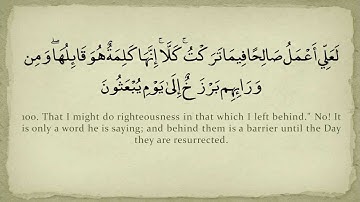 لَعَلِّي أَعْمَلُ صَالِحًا فِيمَا تَرَكْتُ ۚ كَلَّا ۚ إِنَّهَا كَلِمَةٌ هُوَ قَائِلُهَا ۖ وَمِن
وَرَائِهِم بَرْزَخٌ إِلَىٰ يَوْمِ يُبْعَثُونَ
100. That I might do righteousness in that which I left behind." No! It
is only a word he is saying; and behind them is a barrier until the Day
they are resurrected.